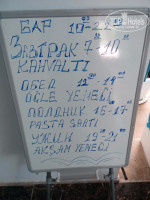 БАР 10⁰⁰-
ЗАВТРАК 7-10
KAHVALTI
ОБЕД 12³⁰-14⁰⁰
ÖĞLE YEMEĞİ
ПОЛДНИК 16-17⁰⁰
PASTA SAATİ
УЖИН 19-21⁰⁰
AKŞAM YEMEĞİ